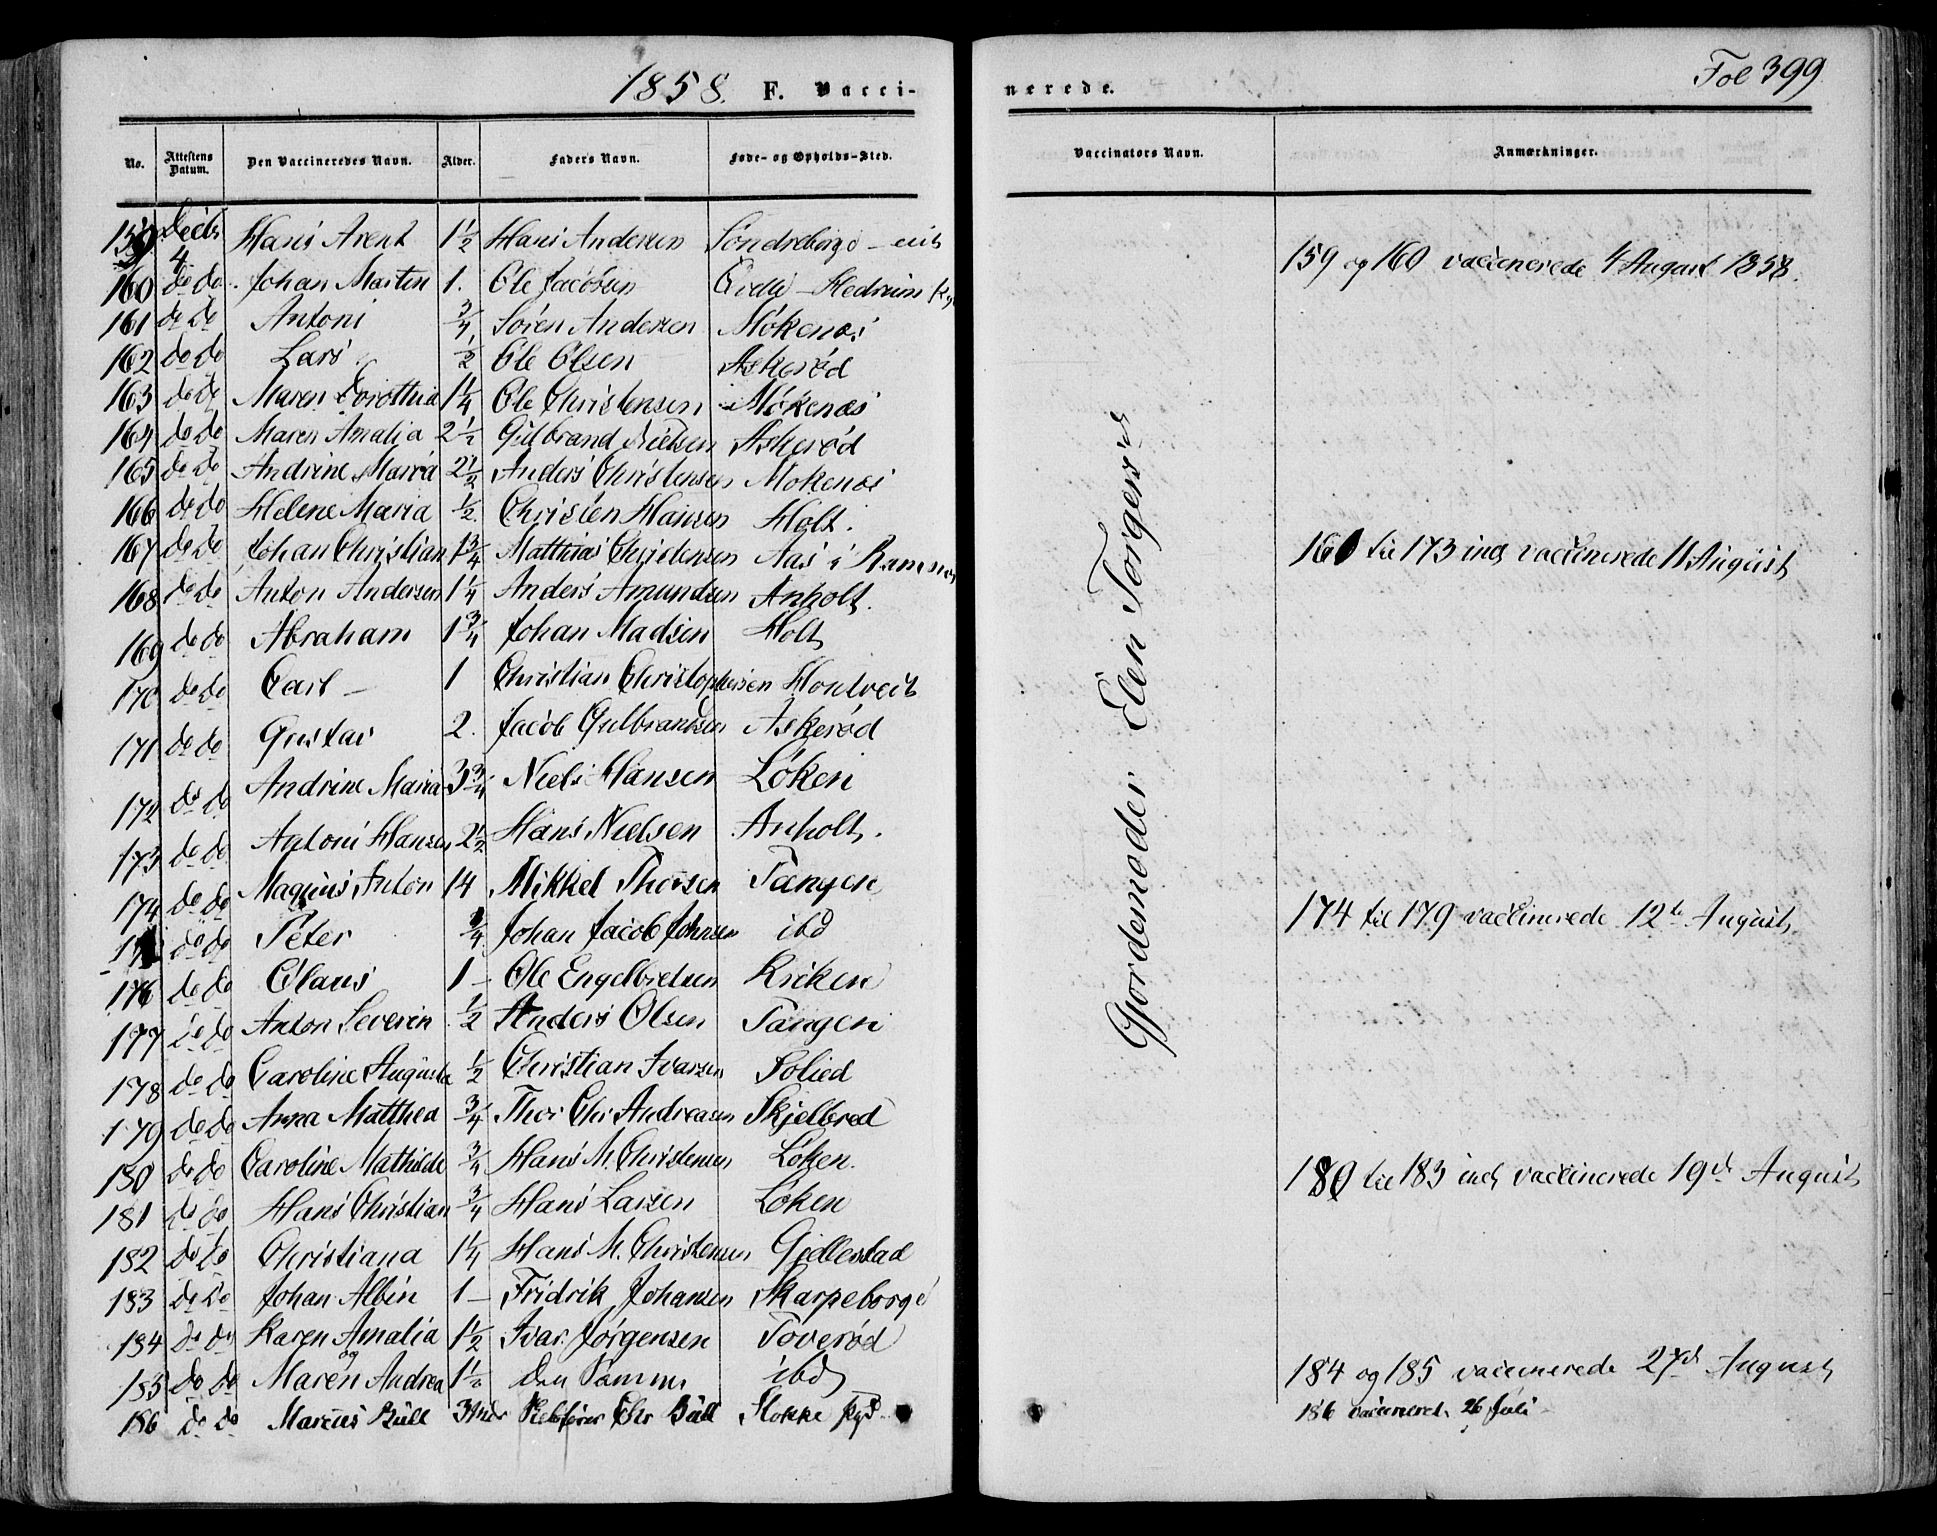 1858. F. Vacci-
nerede.
Fol 399
No. Attestens Datum. Den Vaccineredes Navn. Alder. Faders Navn. Føde- og Opholds-Sted.
Vaccinators Navn. Anmærkninger.
159 4 Hans Arent 1½ Hans Andersen
160 do do Johan Martin 1. Ole Jacobsen Hedrum
161 do do Antoni ¾ Sören Andersen Mökenæs
162 do do Lars ½ Ole Olsen Askeröd
163 do do Maren Dorothia 1¼ Ole Christensen Mökenæs
164 do do Maren Amalia 2½ Gulbrand Nielsen Askeröd
165 do do Andrine Maria 2½ Anders Christensen Mokenæs
166 do do Helene Maria ½ Christen Hansen Holt.
167 do do Johan Christian 1¾ Mathias Christensen Aas i Ramnæs
168 do do Anton Andersen 1¼ Anders Amundsen Anholt.
169 do do Abraham 1¾ Johan Madsen Holt
170 do do Carl – 1 Christian Christophersen Hontveit
171 do do Gustav 2. Jacob Gulbrandsen Askeröd
172 do do Andrine Maria 3¾ Niels Hansen Löken
173 do do Antoni Hansen 2½ Hans Nielsen Anholt.
174 do do Magnus Anton 14 Mikkel Thorsen Tangen
175 do do Peter ¾ Johan Jacob Johnsen ibd
176 do do Olaus 1 – Ole Engelbretsen Kriken
177 do do Anton Severin ½ Anders Olsen Tangen
178 do do Caroline Augusta ½ Christian Ivarsen Solied
179 do do Anna Matthea ¾ Thor Chr Andreasen Skjelbred
180 do do Caroline Mathilde ¾ Hans M. Christensen Löken.
181 do do Hans Christian ¾ Hans Larsen Löken
182 do do Christiana 1¼ Hans M. Christensen Gjellestad
183 do do Johan Albin 1 – Fridrik Johansen Skarpeborge
184 do do Karen Amalia 1½ Ivar Jörgensen Toveröd
og
185 do do Maren Andrea 1½ den Samme ibd
186 do do Marcus Bull Chr Bull Stokke
Gjordemoder Elen Torgersd
159 og 160 vaccinerede 4 August 1858.
161 til 173 incl vaccinerede 11 August
174 til 179 vaccinerede 12te August
180 til 183 incl vaccinerede 19d August
184 og 185 vaccinerede 27d August
186 vaccineret 26 Juli